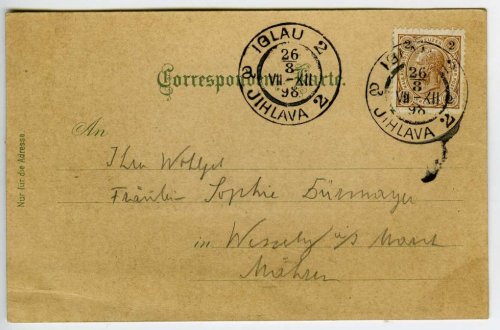 IGLAU 2
26
8
VII-XII
98
2 JIHLAVA 2
2 2
IGLAU 2
26
8
VII-XII
98
2 JIHLAVA 2
Correspondenz-Karte.
An
Nur für die Adresse.
Ihro Wohlgeb
Fräulein Sophie
in Wessely a/d March
Mähren